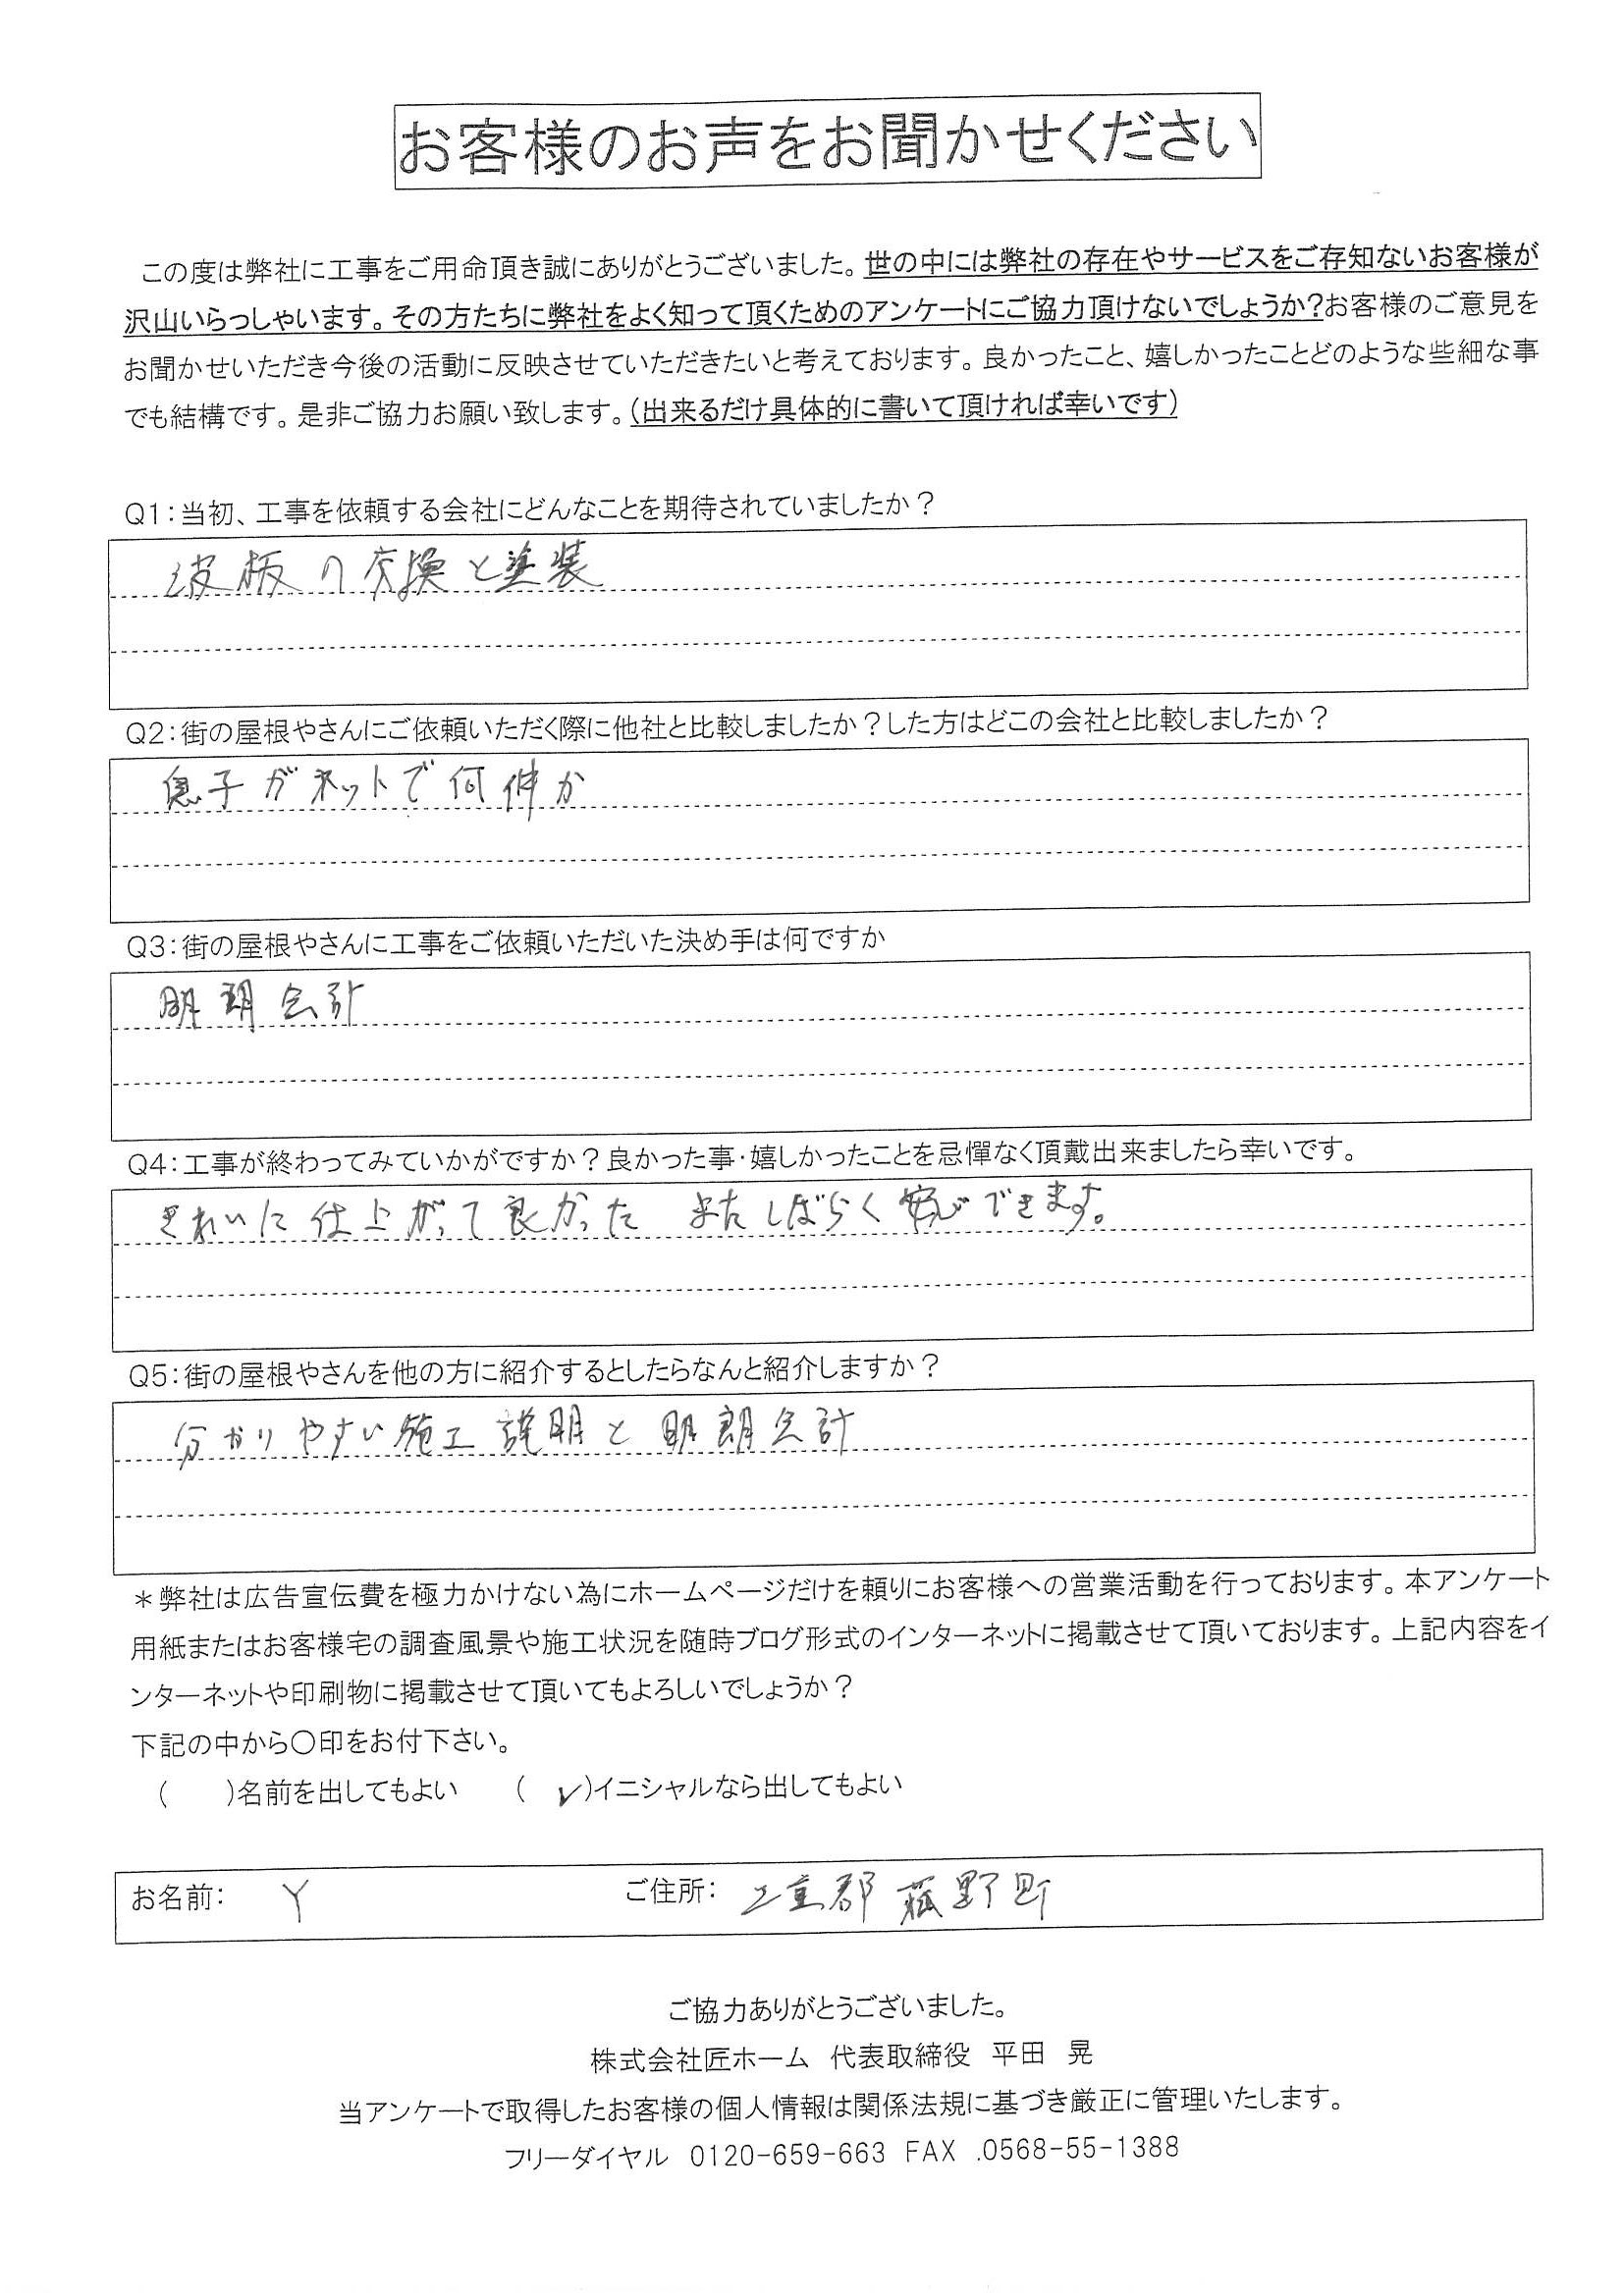 お客様のお声をお聞かせください
この度は弊社に工事をご用命頂き誠にありがとうございました。世の中には弊社の存在やサービスをご存知ないお客様が
沢山いらっしゃいます。その方たちに弊社をよく知って頂くためのアンケートにご協力頂けないでしょうか?お客様のご意見を
お聞かせいただき今後の活動に反映させていただきたいと考えております。良かったこと、嬉しかったことどのような些細な事
でも結構です。是非ご協力お願い致します。(出来るだけ具体的に書いて頂ければ幸いです)
Q1:当初、工事を依頼する会社にどんなことを期待されていましたか?
波板の交換と塗装
Q2:街の屋根やさんにご依頼いただく際に他社と比較しましたか?した方はどこの会社と比較しましたか?
息子がネットで何件か
Q3:街の屋根やさんに工事をご依頼いただいた決め手は何ですか
明朗会計
Q4:工事が終わってみていかがですか?良かった事・嬉しかったことを忌憚なく頂戴出来ましたら幸いです。
きれいに仕上がって良かった またしばらく安心できます。
Q5:街の屋根やさんを他の方に紹介するとしたらなんと紹介しますか?
分かりやすい施工説明と明朗会計
*弊社は広告宣伝費を極力かけない為にホームページだけを頼りにお客様への営業活動を行っております。本アンケート
用紙またはお客様宅の調査風景や施工状況を随時ブログ形式のインターネットに掲載させて頂いております。上記内容をイ
ンターネットや印刷物に掲載させて頂いてもよろしいでしょうか?
下記の中から〇印をお付下さい。
( )名前を出してもよい ( ✓)イニシャルなら出してもよい
お名前: Y ご住所: 三重郡菰野町
ご協力ありがとうございました。
株式会社匠ホーム 代表取締役 平田 晃
当アンケートで取得したお客様の個人情報は関係法規に基づき厳正に管理いたします。
フリーダイヤル 0120-659-663 FAX .0568-55-1388